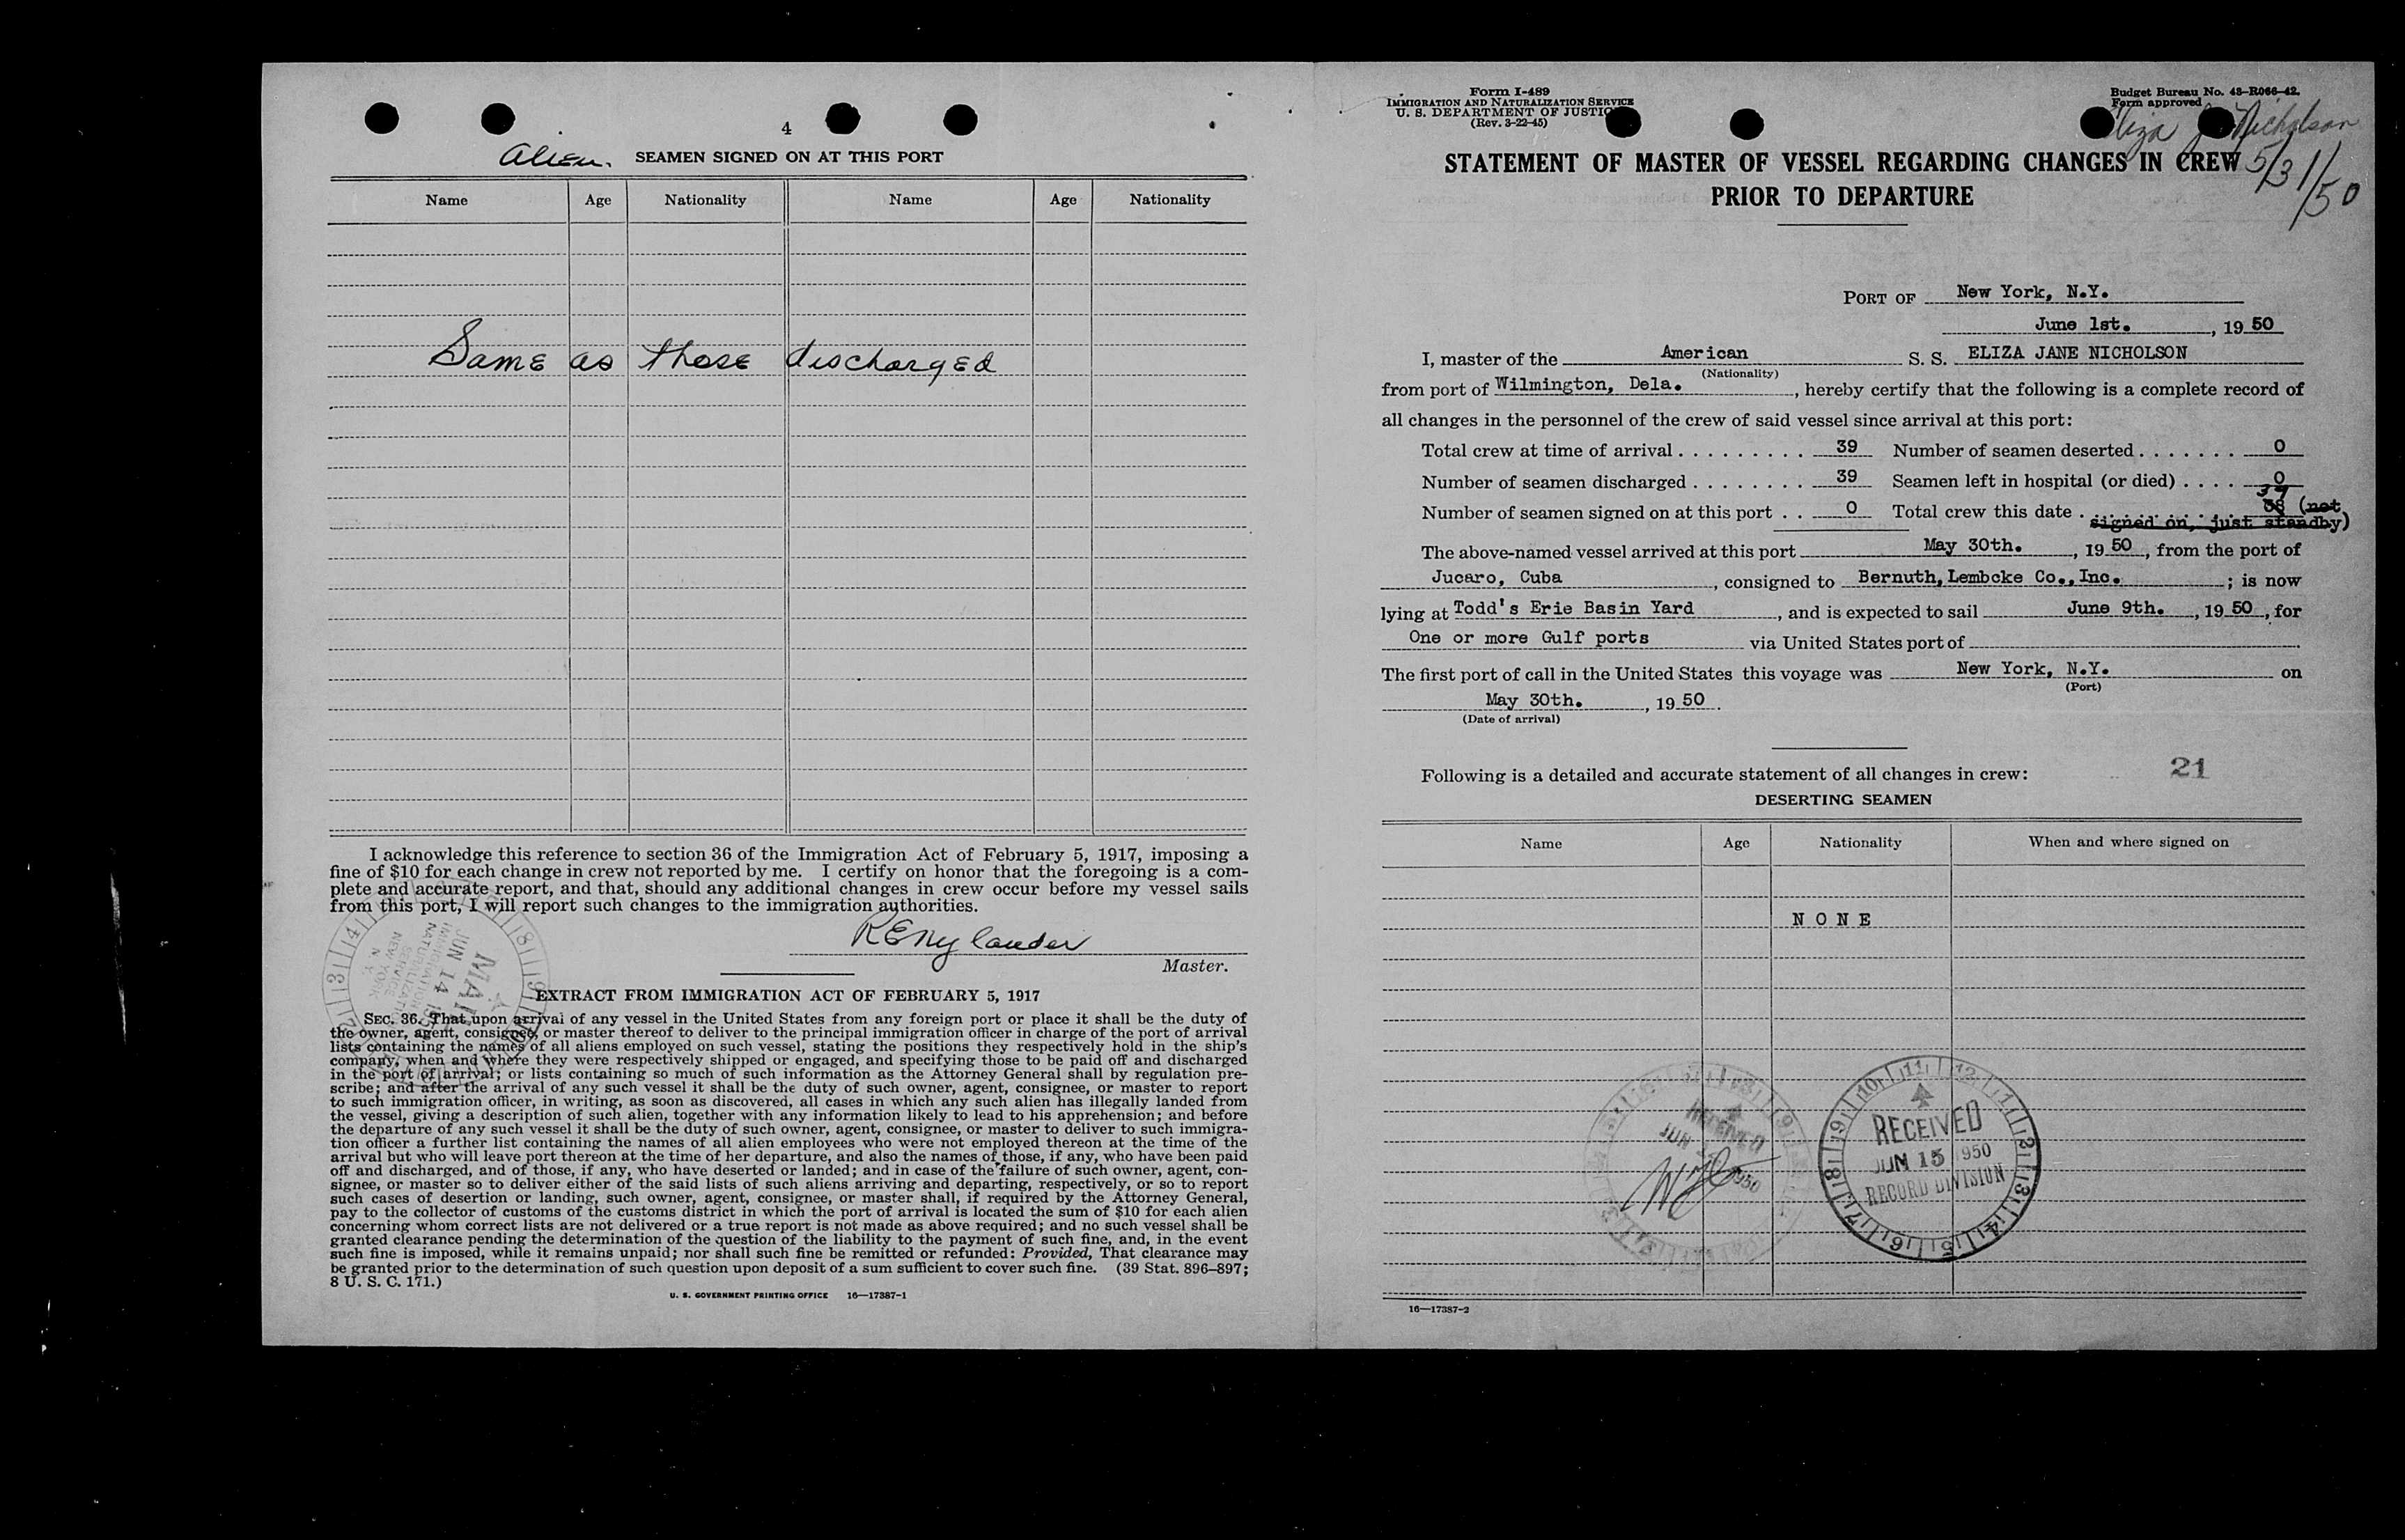 4
Alien. SEAMEN SIGNED ON AT THIS PORT
Name Age Nationality Name Age Nationality
Same as those discharged
I acknowledge this reference to section 36 of the Immigration Act of February 5, 1917, imposing a
fine of $10 for each change in crew not reported by me. I certify on honor that the foregoing is a com-
plete and accurate report, and that, should any additional changes in crew occur before my vessel sails
from this port, I will report such changes to the immigration authorities.
RENylander
Master.
MAIL
JUN 14
IMMIGRATION
NATURALIZATION
SERVICE
NEW YORK
N. Y.
EXTRACT FROM IMMIGRATION ACT OF FEBRUARY 5, 1917
SEC. 36. That upon arrival of any vessel in the United States from any foreign port or place it shall be the duty of
the owner, agent, consignee, or master thereof to deliver to the principal immigration officer in charge of the port of arrival
lists containing the names of all aliens employed on such vessel, stating the positions they respectively hold in the ship's
company, when and where they were respectively shipped or engaged, and specifying those to be paid off and discharged
in the port of arrival; or lists containing so much of such information as the Attorney General shall by regulation pre-
scribe; and after the arrival of any such vessel it shall be the duty of such owner, agent, consignee, or master to report
to such immigration officer, in writing, as soon as discovered, all cases in which any such alien has illegally landed from
the vessel, giving a description of such alien, together with any information likely to lead to his apprehension; and before
the departure of any such vessel it shall be the duty of such owner, agent, consignee, or master to deliver to such immigra-
tion officer a further list containing the names of all alien employees who were not employed thereon at the time of the
arrival but who will leave port thereon at the time of her departure, and also the names of those, if any, who have been paid
off and discharged, and of those, if any, who have deserted or landed; and in case of the failure of such owner, agent, con-
signee, or master so to deliver either of the said lists of such aliens arriving and departing, respectively, or so to report
such cases of desertion or landing, such owner, agent, consignee, or master shall, if required by the Attorney General,
pay to the collector of customs of the customs district in which the port of arrival is located the sum of $10 for each alien
concerning whom correct lists are not delivered or a true report is not made as above required; and no such vessel shall be
granted clearance pending the determination of the question of the liability to the payment of such fine, and, in the event
such fine is imposed, while it remains unpaid; nor shall such fine be remitted or refunded: Provided, That clearance may
be granted prior to the determination of such question upon deposit of a sum sufficient to cover such fine. (39 Stat. 896–897;
8 U. S. C. 171.)
U. S. GOVERNMENT PRINTING OFFICE 16—17387-1
Form I-489
IMMIGRATION AND NATURALIZATION SERVICE
U. S. DEPARTMENT OF JUSTICE
(Rev. 3-22-45)
Budget Bureau No. 43-R066-42.
Form approved
Eliza J Nicholson
5/31/50
STATEMENT OF MASTER OF VESSEL REGARDING CHANGES IN CREW
PRIOR TO DEPARTURE
PORT OF New York, N.Y.
June 1st. , 19 50
I, master of the American S. S. ELIZA JANE NICHOLSON
(Nationality)
from port of Wilmington, Dela. , hereby certify that the following is a complete record of
all changes in the personnel of the crew of said vessel since arrival at this port:
Total crew at time of arrival . . . . . . . . . 39 Number of seamen deserted . . . . . . . 0
Number of seamen discharged . . . . . . . . 39 Seamen left in hospital (or died) . . . . 0
37
Number of seamen signed on at this port . . 0 Total crew this date . . . . . . . . . 38 (not
signed on, just standby)
The above-named vessel arrived at this port May 30th. , 19 50 , from the port of
Jucaro, Cuba , consigned to Bernuth, Lembcke Co., Inc. ; is now
lying at Todd's Erie Basin Yard , and is expected to sail June 9th. , 19 50 , for
One or more Gulf ports via United States port of
The first port of call in the United States this voyage was New York, N.Y. on
(Port)
May 30th. , 19 50 .
(Date of arrival)
Following is a detailed and accurate statement of all changes in crew: 21
DESERTING SEAMEN
Name Age Nationality When and where signed on
NONE
RECEIVED
JUN 1950
RECEIVED
JUN 15 1950
RECORD DIVISION
16—17387-2